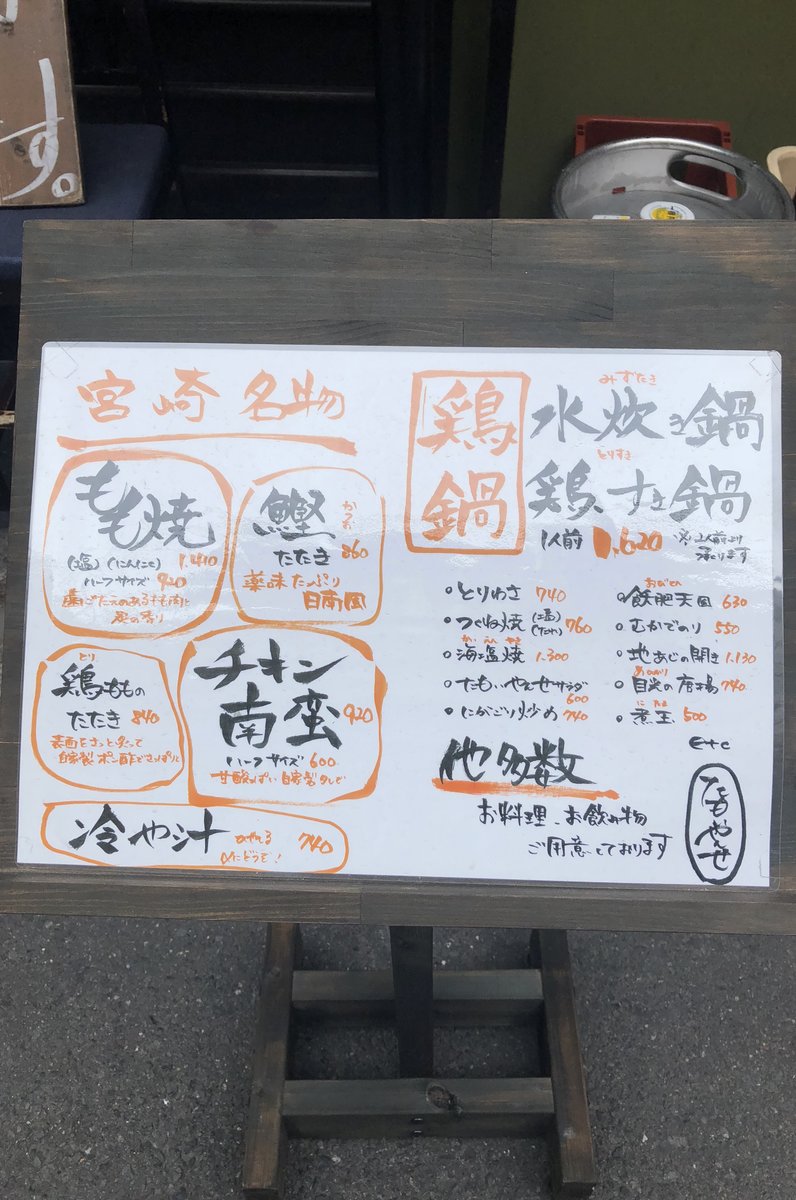 す。
宮崎名物
もも焼
(塩) (にんにく) 1.410
ハーフサイズ 920
歯ごたえのあるもも肉と
炭の香り
かつお
鰹
たたき 860
薬味たっぷり
日南風
とり
鶏ももの
たたき 840
表面をさっと炙って
自家製ポン酢でさっぱりと
チキン
南蛮 920
ハーフサイズ 600
甘酸っぱい自家製タレで
冷や汁 740
〆にどうぞ!
鶏鍋
みずたき
水炊き鍋
とりすき
鶏すき鍋
1人前 1,620 ※2人前より
承ります
・とりわさ 740
・つくね焼 (塩) (たれ) 760
・海塩焼 1.300
・たもいやんせサラダ 600
・にがごり炒め 740
おびてん
・飫肥天 630
・むかでのり 550
・地あじの開き 1.130
・目光の唐揚 740
・煮玉 500
etc
他多数
お料理、お飲み物
ご用意しております
たもいやんせ